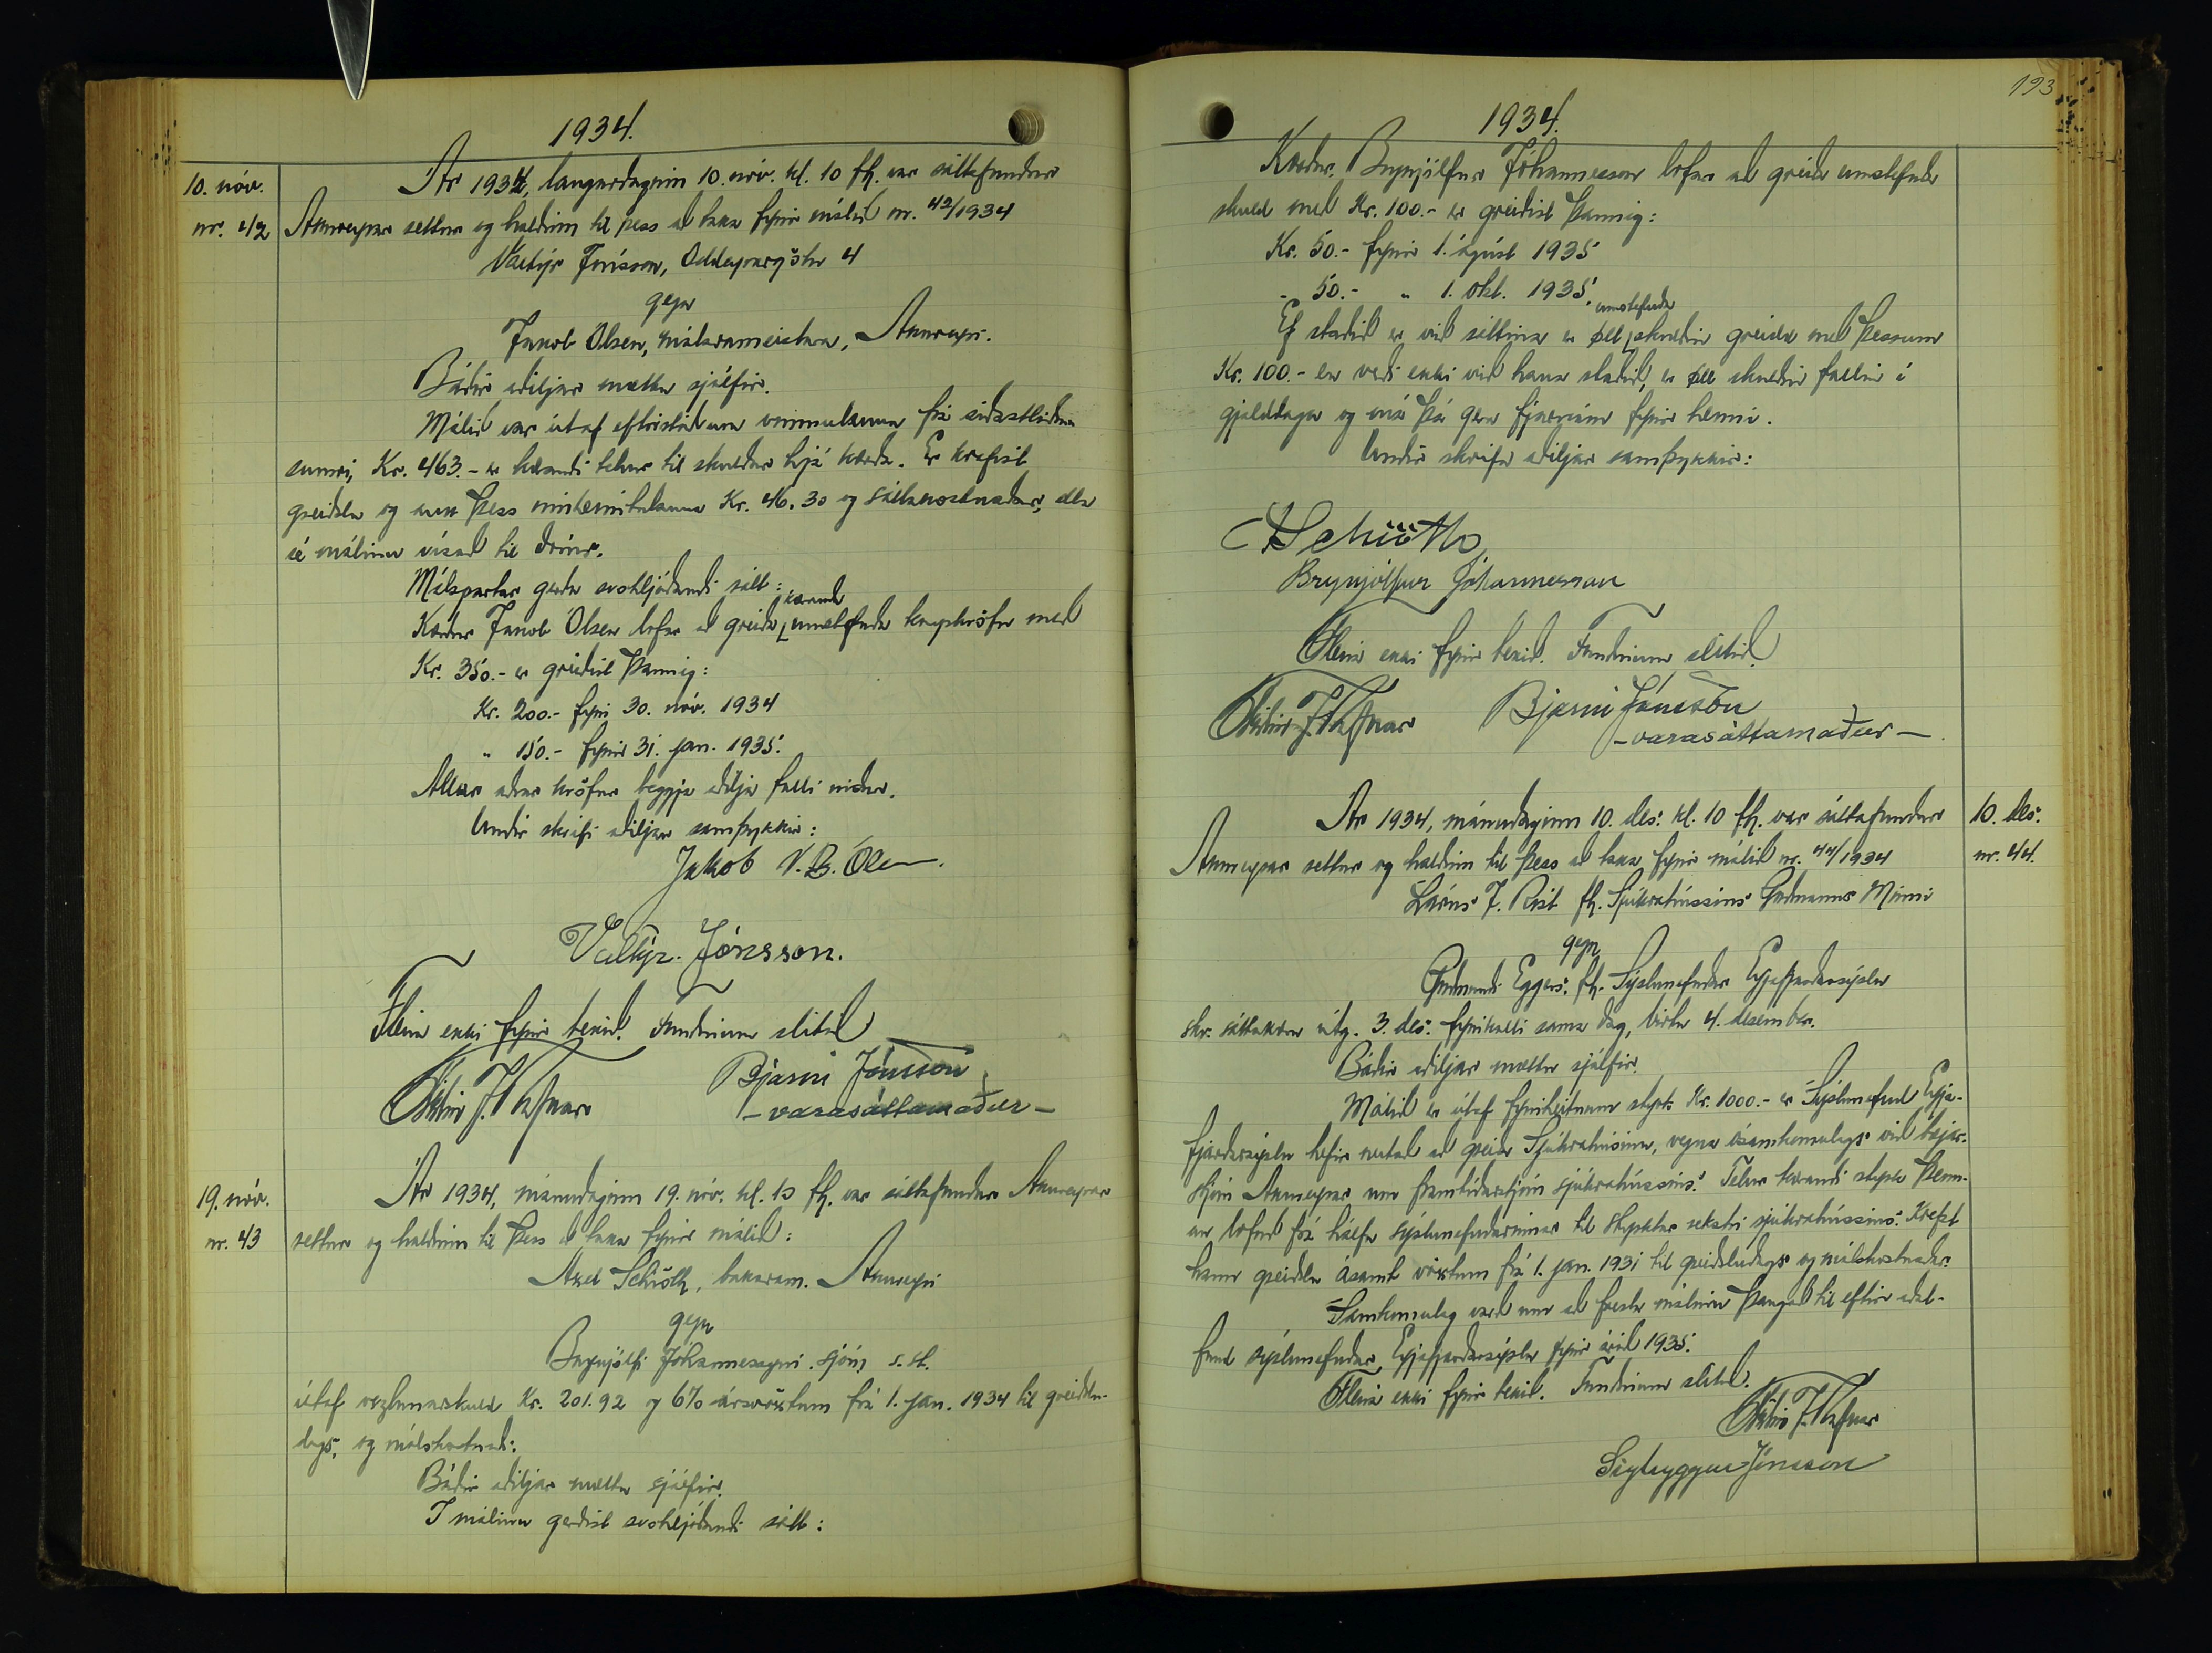 1934.
10. nóv.
nr. 42
Ár 1934, laugardaginn 10. nóv. kl. 10 fh. var sáttafundur
Akureyrar settur og haldinn til þess að taka fyrir málið nr. 42/1934
Valtýr Jónsson, Oddeyrargötu 4
gegn
Jakob Olsen, málarameistara, Akureyri.
Báðir aðiljar mættu sjálfir.
Málið var útaf eftirstöðvum vinnulauna frá síðastliðnu
sumri, Kr. 463.- er kærandi telur til skuldar hjá kærða. Er krafist
greiðslu og auk þess innheimtulauna Kr. 46.30 og sáttakostnaðar, ella
sé málinu vísað til dóms.
Málspartar gerðu svohljóðandi sátt:
kæranda
Kærður Jakob Olsen lofar að greiða umstefnda kaupkröfu með
Kr. 350.- er greiðist þannig:
Kr. 200.- fyrir 30. nóv. 1934
" 150.- fyrir 31. jan. 1935.
Allar aðrar kröfur beggja aðilja falli niður.
Undir skrifa aðiljar samþykkir:
Jakob V. B. Olsen.
Valtýr Jónsson.
Fleira ekki fyrir tekið. Fundinum slitið
J. Rafnar
Bjarni Jónsson
- varasáttamaður -
19. nóv.
nr. 43
Ár 1934, mánudaginn 19. nóv. kl. 10 fh. var sáttafundur Akureyrar
settur og haldinn til þess að taka fyrir málið:
Axel Schiöth, bakaram. Akureyri
gegn
Brynjólfi Jóhannessyni sjóm. s.st.
útaf verzlunarskuld Kr. 201.92 og 6% ársvöxtum frá 1. jan. 1934 til greiðslu-
dags, og málskostnað:
Báðir aðiljar mættu sjálfir.
Í málinu gerðist svohljóðandi sátt:
193
1934.
Kærður, Brynjólfur Jóhannesson lofar að greiða umstefnda
skuld með Kr. 100.- er greiðist þannig:
Kr. 50.- fyrir 1. ágúst 1935
- 50.- " 1. okt. 1935.
umstefnda
Ef staðið er við sáttina er öll skuldin greidd með þessum
Kr. 100.- en verði ekki við hana staðið, er öll skuldin fallin í
gjalddaga og má þá gera fjárnám fyrir henni.
Undir skrifa aðiljar samþykkir:
A Schiöth
Brynjólfur Jóhannesson
Fleira ekki fyrir tekið. Fundinum slitið.
J. Rafnar
Bjarni Jónsson
- varasáttamaður -
10. des.
nr. 44.
Ár 1934, mánudaginn 10. des. kl. 10 fh. var sáttafundur
Akureyrar settur og haldinn til þess að taka fyrir málið nr. 44/1934
Lárus J. Rist fh. Sjúkrahússins Guðmanns Minni
gegn
Guðmundi Eggerz. fh. Sýslunefndar Eyjafjarðarsýslu
skv. sáttakæru útg. 3. des. fyrirkalli sama dag, birtu 4. desember.
Báðir aðiljar mættu sjálfir.
Málið er útaf fyrirheitnum styrk Kr. 1000.- er Sýslunefnd Eyja-
fjarðarsýslu hefir neitað að greiða Sjúkrahúsinu, vegna ósamkomulags við bæjar-
stjórn Akureyrar um framtíðarstjórn sjúkrahússins. Telur kærandi styrk þenn-
an lofað frá hálfu sýslunefndarinnar til styrktar rekstri sjúkrahússins. Krefst
hann greiðslu ásamt vöxtum frá 1. jan. 1931 til greiðsludags og málskostnaðar.
Samkomulag varð um að fresta málinu þangað til eftir aðal-
fund sýslunefndar Eyjafjarðarsýslu fyrir árið 1935.
Fleira ekki fyrir tekið. Fundinum slitið.
J. Rafnar
Sigtryggur Jónsson